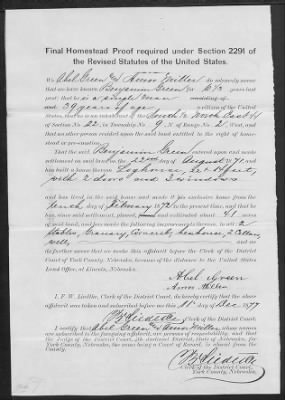 Final Homestead Proof required under Section 2291 of
the Revised Statutes of the United States.
We Abel Green & Amos Miller do solemnly swear
that we have known Benjamin Green for 6 1/2 years last
past; that he is a single man consisting of
and 39 years of age a citizen of the United
States, that he is an inhabitant of the South 1/2 North East 1/4
of Section No. 22, in Township No. 9 N of Range No. 2 West, and
that no other person resided upon the said land entitled to the right of home-
stead or pre-emption.
That the said Benjamin Green entered upon and made
settlement on said land on the 22nd day of August 1871, and
has built a house thereon Loghouse, 12 x 14 feet,
with 2 doors and 3 windows
and has lived in the said house and made it his exclusive home from the
tenth day of February 1872 to the present time, and that he
has, since said settlement, plowed, and cultivated about 41 acres
of said land, and has made the following improvements thereon, to wit: 2
Stables, Granary, Corncrib, henhouse, 2
well, and we
do further swear that we make this affidavit before the Clerk of the District
Court of York County, Nebraska, because of the distance to the United States
Land Office, at Lincoln, Nebraska.
Abel Green
Amos Miller
I, F. W. Liedtke, Clerk of the District Court, do hereby certify that the above
affidavit was taken and subscribed before me this 11th day of Dec 1877
FW Liedtke Clerk of the District Court.
I certify that Abel Green & Amos Miller whose names
are subscribed to the foregoing affidavit, are persons of respectability; and that
the Judge of the District Court, 4th Judicial District, State of Nebraska, for
York County, Nebraska, the same being a Court of Record, is absent from the
County.
FW Liedtke
Clerk of the District Court,
York County, Nebraska.